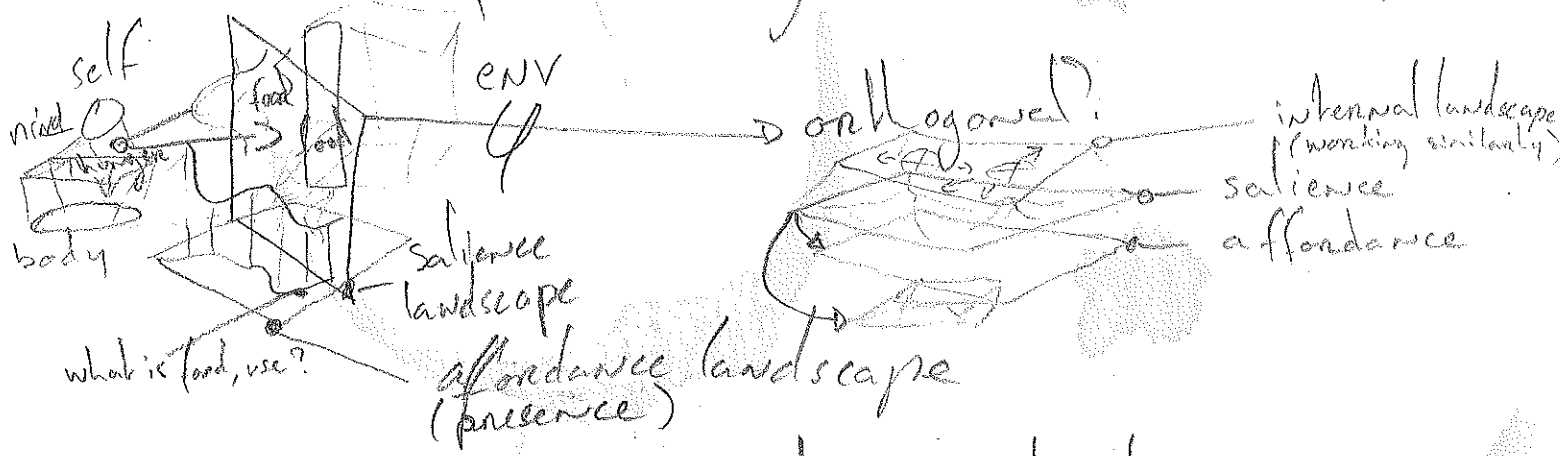 self
mind
hunger
body
food
food
ENV
φ
salience
landscape
what is food, use?
affordance landscape
(presence)
orthogonal?
internal landscape
(working similarly)
salience
affordance